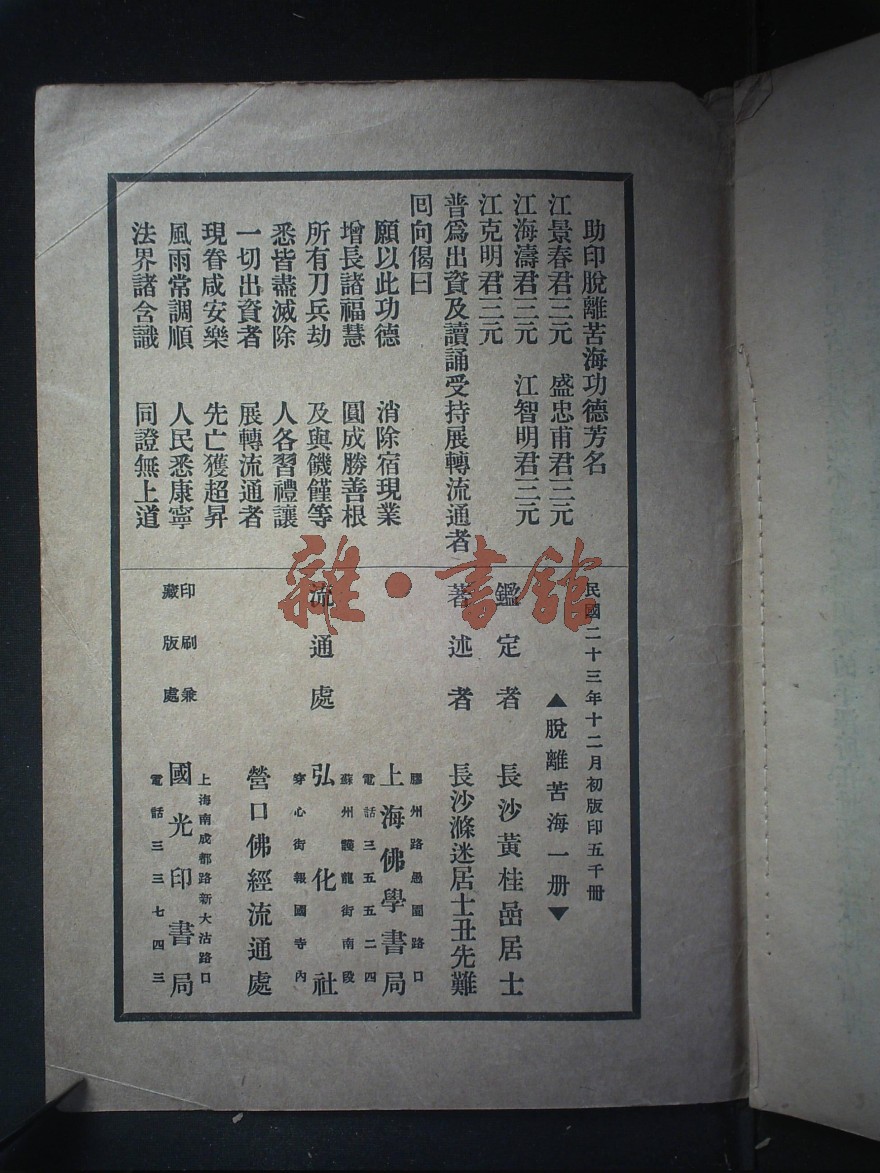 助印脫離苦海功德芳名
江景春君三元 盛忠甫君三元
江海濤君三元 江智明君三元
江克明君三元
普爲出資及讀誦受持展轉流通者
回向偈曰
願以此功德 消除宿現業
增長諸福慧 圓成勝善根
所有刀兵劫 及與饑饉等
悉皆盡滅除 人各習禮讓
一切出資者 展轉流通者
現眷咸安樂 先亡獲超昇
風雨常調順 人民悉康寧
法界諸含識 同證無上道
民國二十三年十二月初版印五千冊
▲脫離苦海一册▼
鑑定者 長沙黃桂嵒居士
著述者 長沙滌迷居士丑先難
流通處
膠州路愚園路口
上海佛學書局
電話三五五二四
蘇州護龍街南段
弘化社
穿心街報國寺內
營口佛經流通處
印刷兼
藏版處
上海南成都路新大沽路口
國光印書局
電話三三七四三
雜·書館